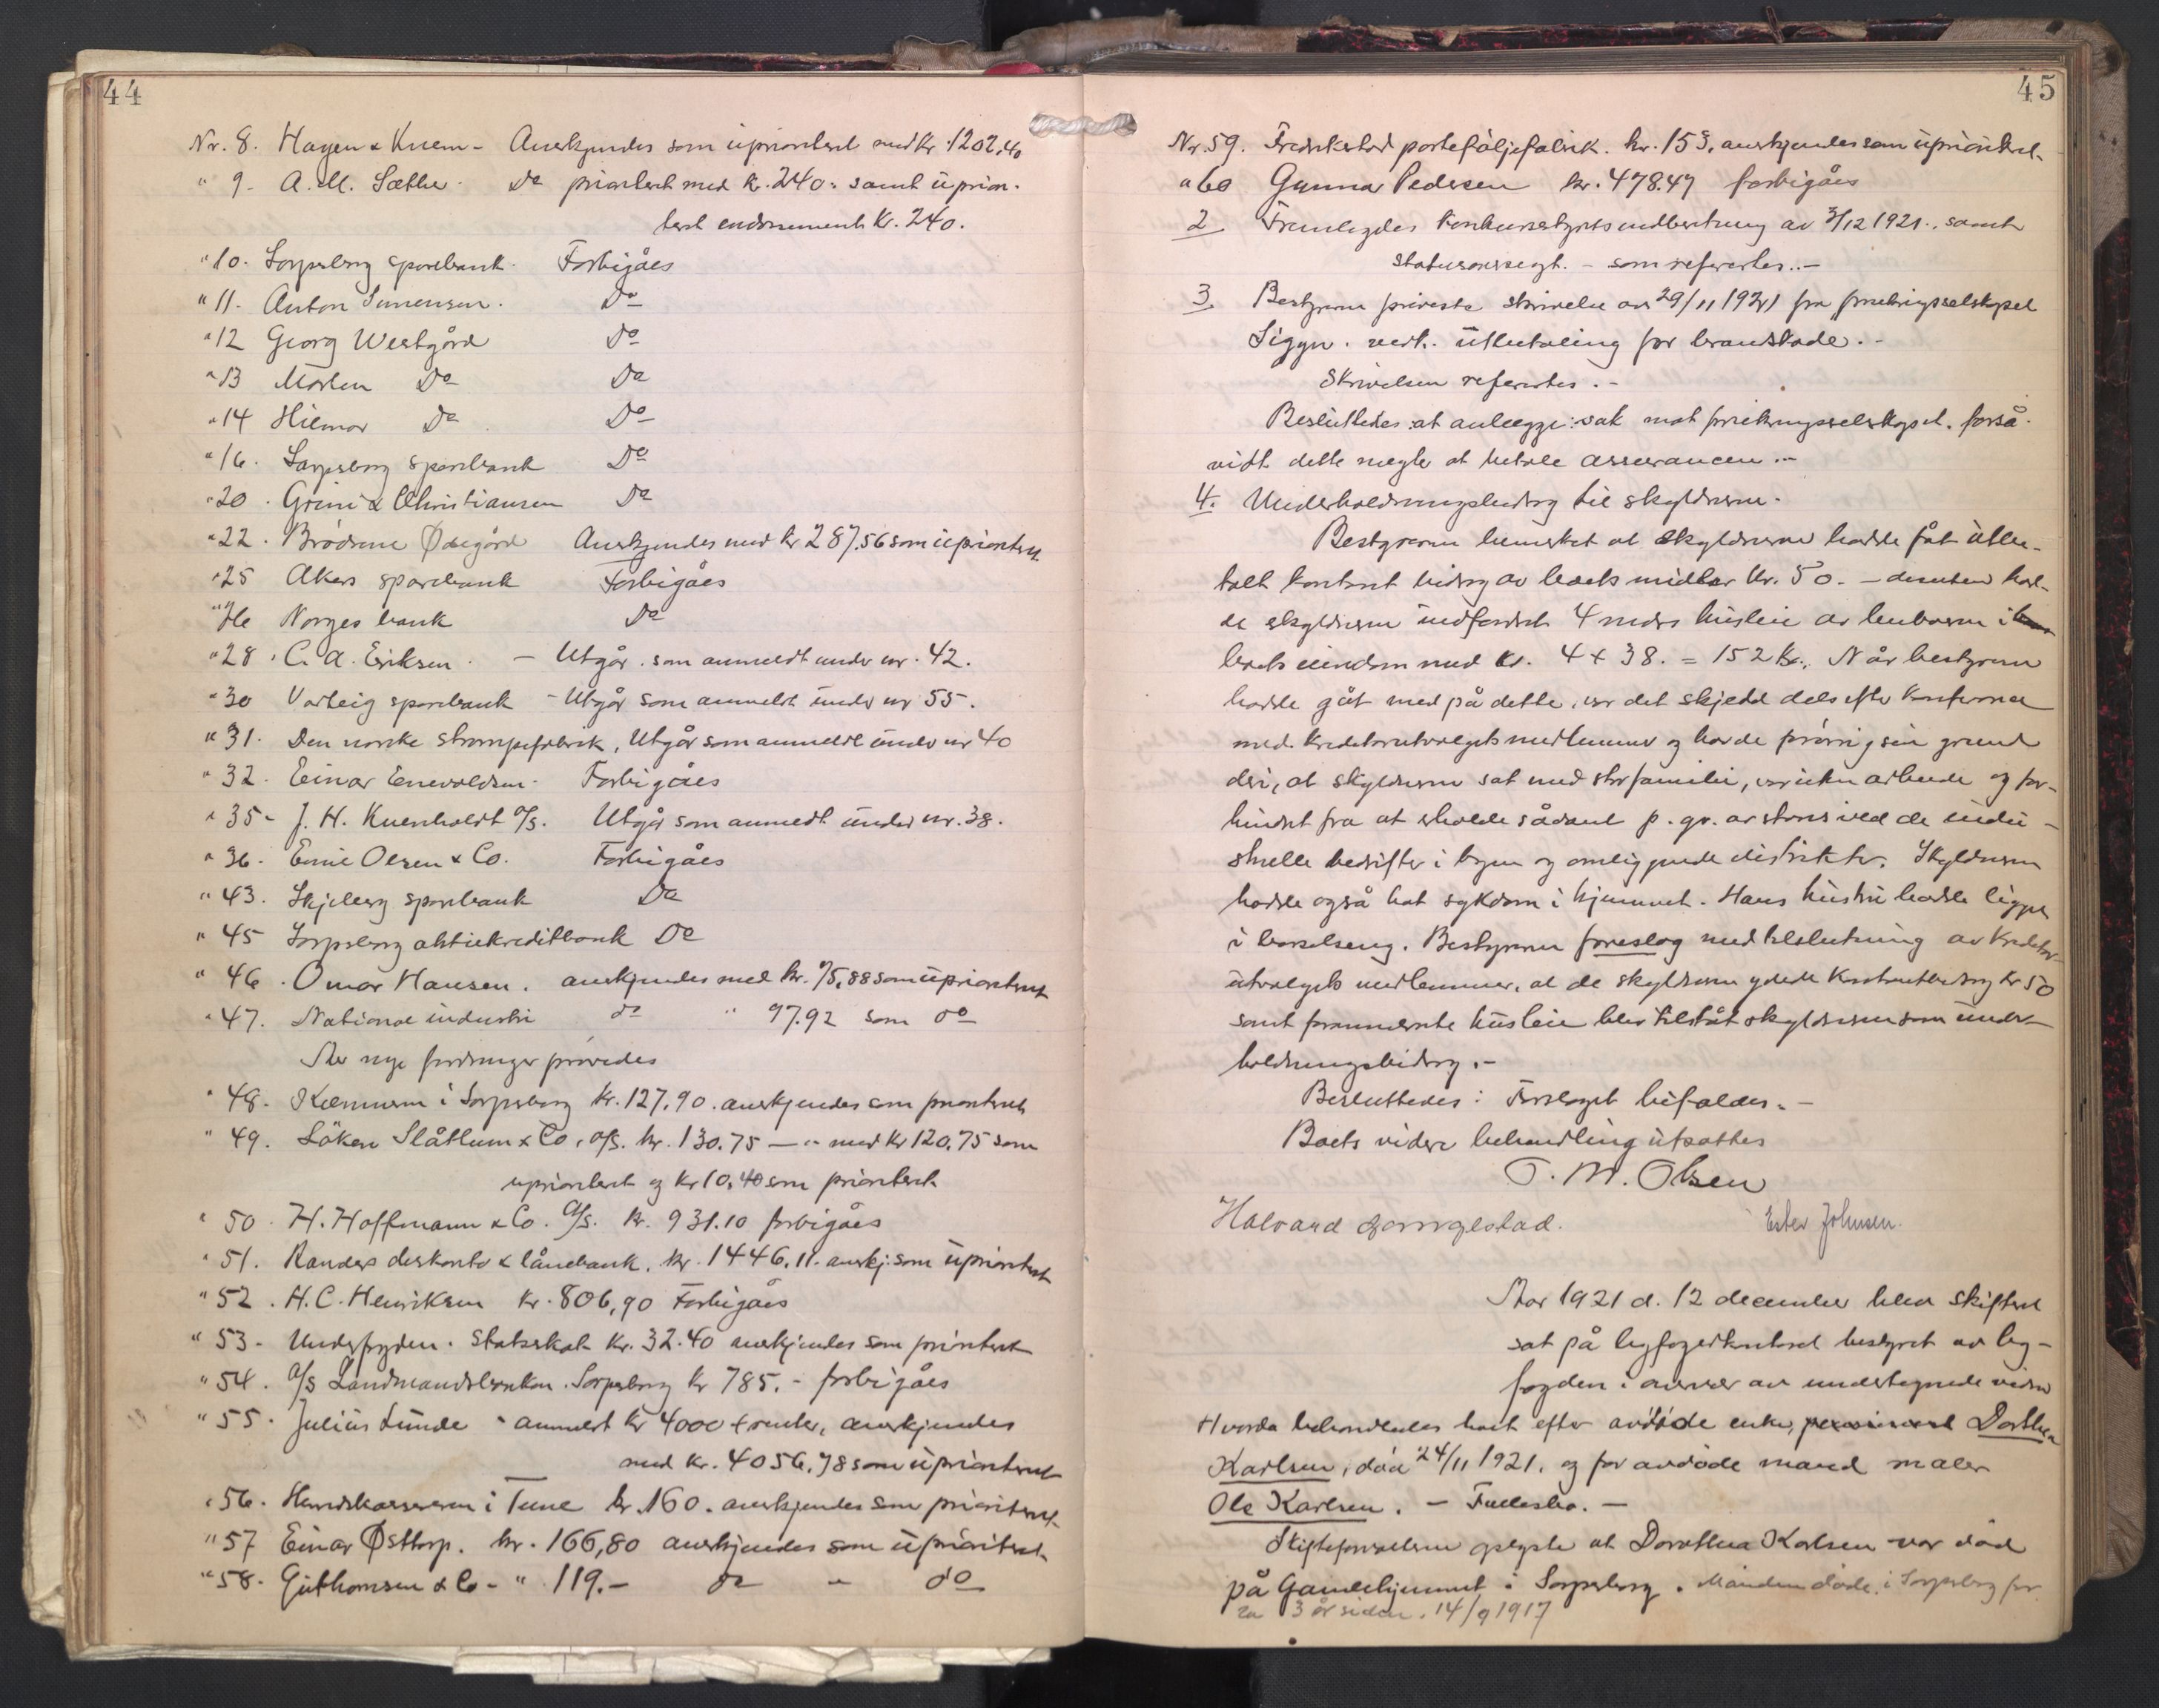 44
Nr. 8. Hagen & Knem - Anerkjendes som uprioritert med kr. 1202,40
" 9. A. M. Sæther. Do prioritert med kr. 240.- samt uprior-
tert endossement kr. 240.
" 10. Sarpsborg sparebank. Forbigåes
" 11. Anton Simensen. Do
" 12 Georg Westgård Do
" 13 Marten Do Do
" 14 Hilmar Do Do
" 16. Sarpsborg sparebank Do
" 20. Grimi & Christiansen Do
" 22. Brödrene Ødegård Anerkjendes med kr 287.56 som uprioritert
" 25 Akers sparebank Forbigåes
" 26 Norges bank Do
" 28. C. A. Eriksen. - Utgår som anmeldt under nr. 42.
" 30 Varteig sparebank - Utgår som anmeldt under nr 55.
" 31. Den norske strømpefabrik, Utgår som anmeldt under nr 40
" 32. Einar Enevoldsen. Forbigåes
" 35. J. H. Kuenholdt A/S. Utgår som anmeldt under nr. 38.
" 36. Emil Olsen & Co. Forbigåes
" 43. Skjeberg sparebank Do
" 45 Sarpsborg aktiekreditbank Do
" 46. Omar Hansen. anerkjendes med kr. 75,88 som uprioritert
" 47. National industri do " 97.92 som do
Av nye fordringer prøvedes
" 48. Kæmneren i Sarpsborg kr. 127,90. anerkjendes som prioritert
" 49. Löken Slåttum & Co, A/S. kr. 130.75 — " med kr 120,75 som
uprioritert og kr 10,40 som prioritert
" 50. H. Hoffmann & Co. A/S. kr. 931.10 forbigåes
" 51. Randers diskonto & lånebank. kr. 1446,11. anerkj. som uprioritert
" 52. H. C. Henriksen kr. 806,90 Forbigåes
" 53. Underfogden. Statsskat kr. 32.40 anerkjendes som prioritert
" 54. A/S Landmandsbanken. Sarpsborg kr 785.- forbigåes
" 55. Julius Lunde - anmeldt kr 4000 + renter, anerkjendes
med kr. 4056,78 som uprioritert
" 56. Herredskassereren i Tune kr. 160. anerkjendes som prioritert
" 57 Einar Østtorp. kr. 166,80 anerkjendes som uprioritert
" 58. Guthomsen & Co - " 119.- do " do
45
Nr. 59. Fredrikstad porteføljefabrik. kr. 153, anerkjendes som uprioritert.
" 60 Gunnar Pedersen kr. 478.47 forbigåes
2 Fremlagdes konkursstyrets indberetning av 3/12 1921., samt
statusoversigt. - som refertes..-
3 Bestyreren skrivelse av 29/11 1921 fra forsikringsselskapet
Sigyn. vedk. utbetaling for brandskade.-
Skrivelsen refertes.-
Besluttedes at anlægge sak mot forsikringsselskapet, forså-
vidt dette nægter at betale assurancen.-
4. Underholdningsbidrag til skyldneren.
Bestyreren bemerket at skyldneren hadde fåt utbe-
talt kontant bidrag av boets midler kr. 50. - desuten had-
de skyldneren indfordret 4 mdrs husleie av leieboeren i
boets eiendom med kr. 4 x 38. = 152 kr. Når bestyreren
hadde gåt med på dette, var det skjedd dels efter konferanse
med kreditorutvalgets medlemmer og havde forøvrig sin grund
deri, at skyldneren sat med stor familie, var uten arbeide og for-
hindret fra at erholde sådant p. gr. av stans ved de indu-
strielle bedrifter i byen og omliggende distrikter. Skyldneren
hadde også hat sykdom i hjemmet. Hans hustru hadde ligget
i barselseng. Bestyreren foreslog med tilslutning av kreditor-
utvalgets medlemmer, at de skyldneren ydede kontantbidrag kr 50
samt forannævnte husleie blev tilståt skyldneren som under-
holdningsbidrag.-
Besluttedes: Forslaget bifaldes.-
Boets videre behandling utsattes
T. M. Olsen
Halvard Ester Johnsen.
Aar 1921 d. 12 december blev skifteret
sat på bygfogedkontoret bestyret av by-
fogden i overvær av undertegnede vidne
Hvorda behandledes boet efter avdøde enke, Dorthea
Karlsen, død 24/11 1921. og før avdøde mand maler
Ole Karlsen. - Fællesbo. -
Skifteforvalteren oplyste at Dorothea Karlsen var død
på Gamlehjemmet i Sarpsborg. Manden døde i Sarpsborg for
ca 3 år siden. 14/9 1917